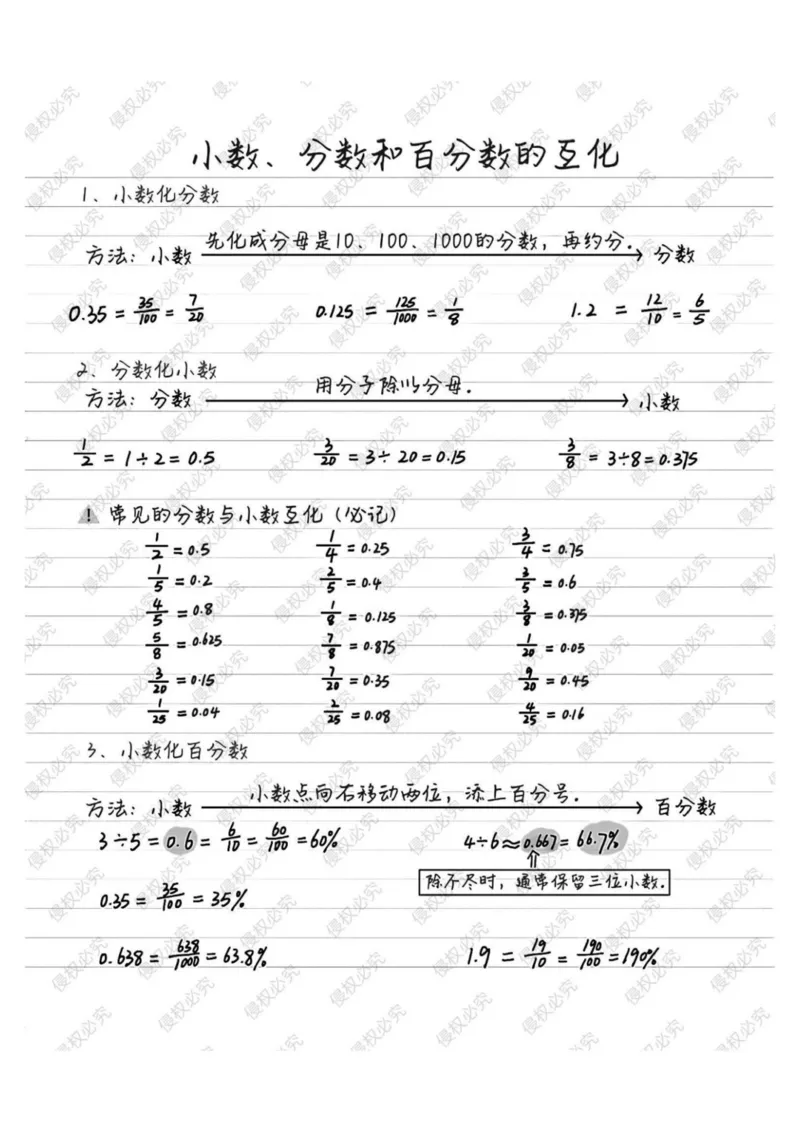 小数、分数和百分数的互化
1、小数化分数
方法：小数 先化成分母是10、100、1000的分数，再约分. → 分数
0.35 = 35/100 = 7/20 0.125 = 125/1000 = 1/8 1.2 = 12/10 = 6/5
2、分数化小数
方法：分数 用分子除以分母. → 小数
1/2 = 1÷2 = 0.5 3/20 = 3÷20 = 0.15 3/8 = 3÷8 = 0.375
! 常见的分数与小数互化（必记）
1/2 = 0.5 1/4 = 0.25 3/4 = 0.75
1/5 = 0.2 2/5 = 0.4 3/5 = 0.6
4/5 = 0.8 1/8 = 0.125 3/8 = 0.375
5/8 = 0.625 7/8 = 0.875 1/20 = 0.05
3/20 = 0.15 7/20 = 0.35 9/20 = 0.45
1/25 = 0.04 2/25 = 0.08 4/25 = 0.16
3、小数化百分数
方法：小数 小数点向右移动两位，添上百分号. → 百分数
3÷5 = 0.6 = 6/10 = 60/100 = 60% 4÷6 ≈ 0.667 = 66.7%
⇑
除不尽时，通常保留三位小数.
0.35 = 35/100 = 35%
0.638 = 638/1000 = 63.8% 1.9 = 19/10 = 190/100 = 190%
侵权必究